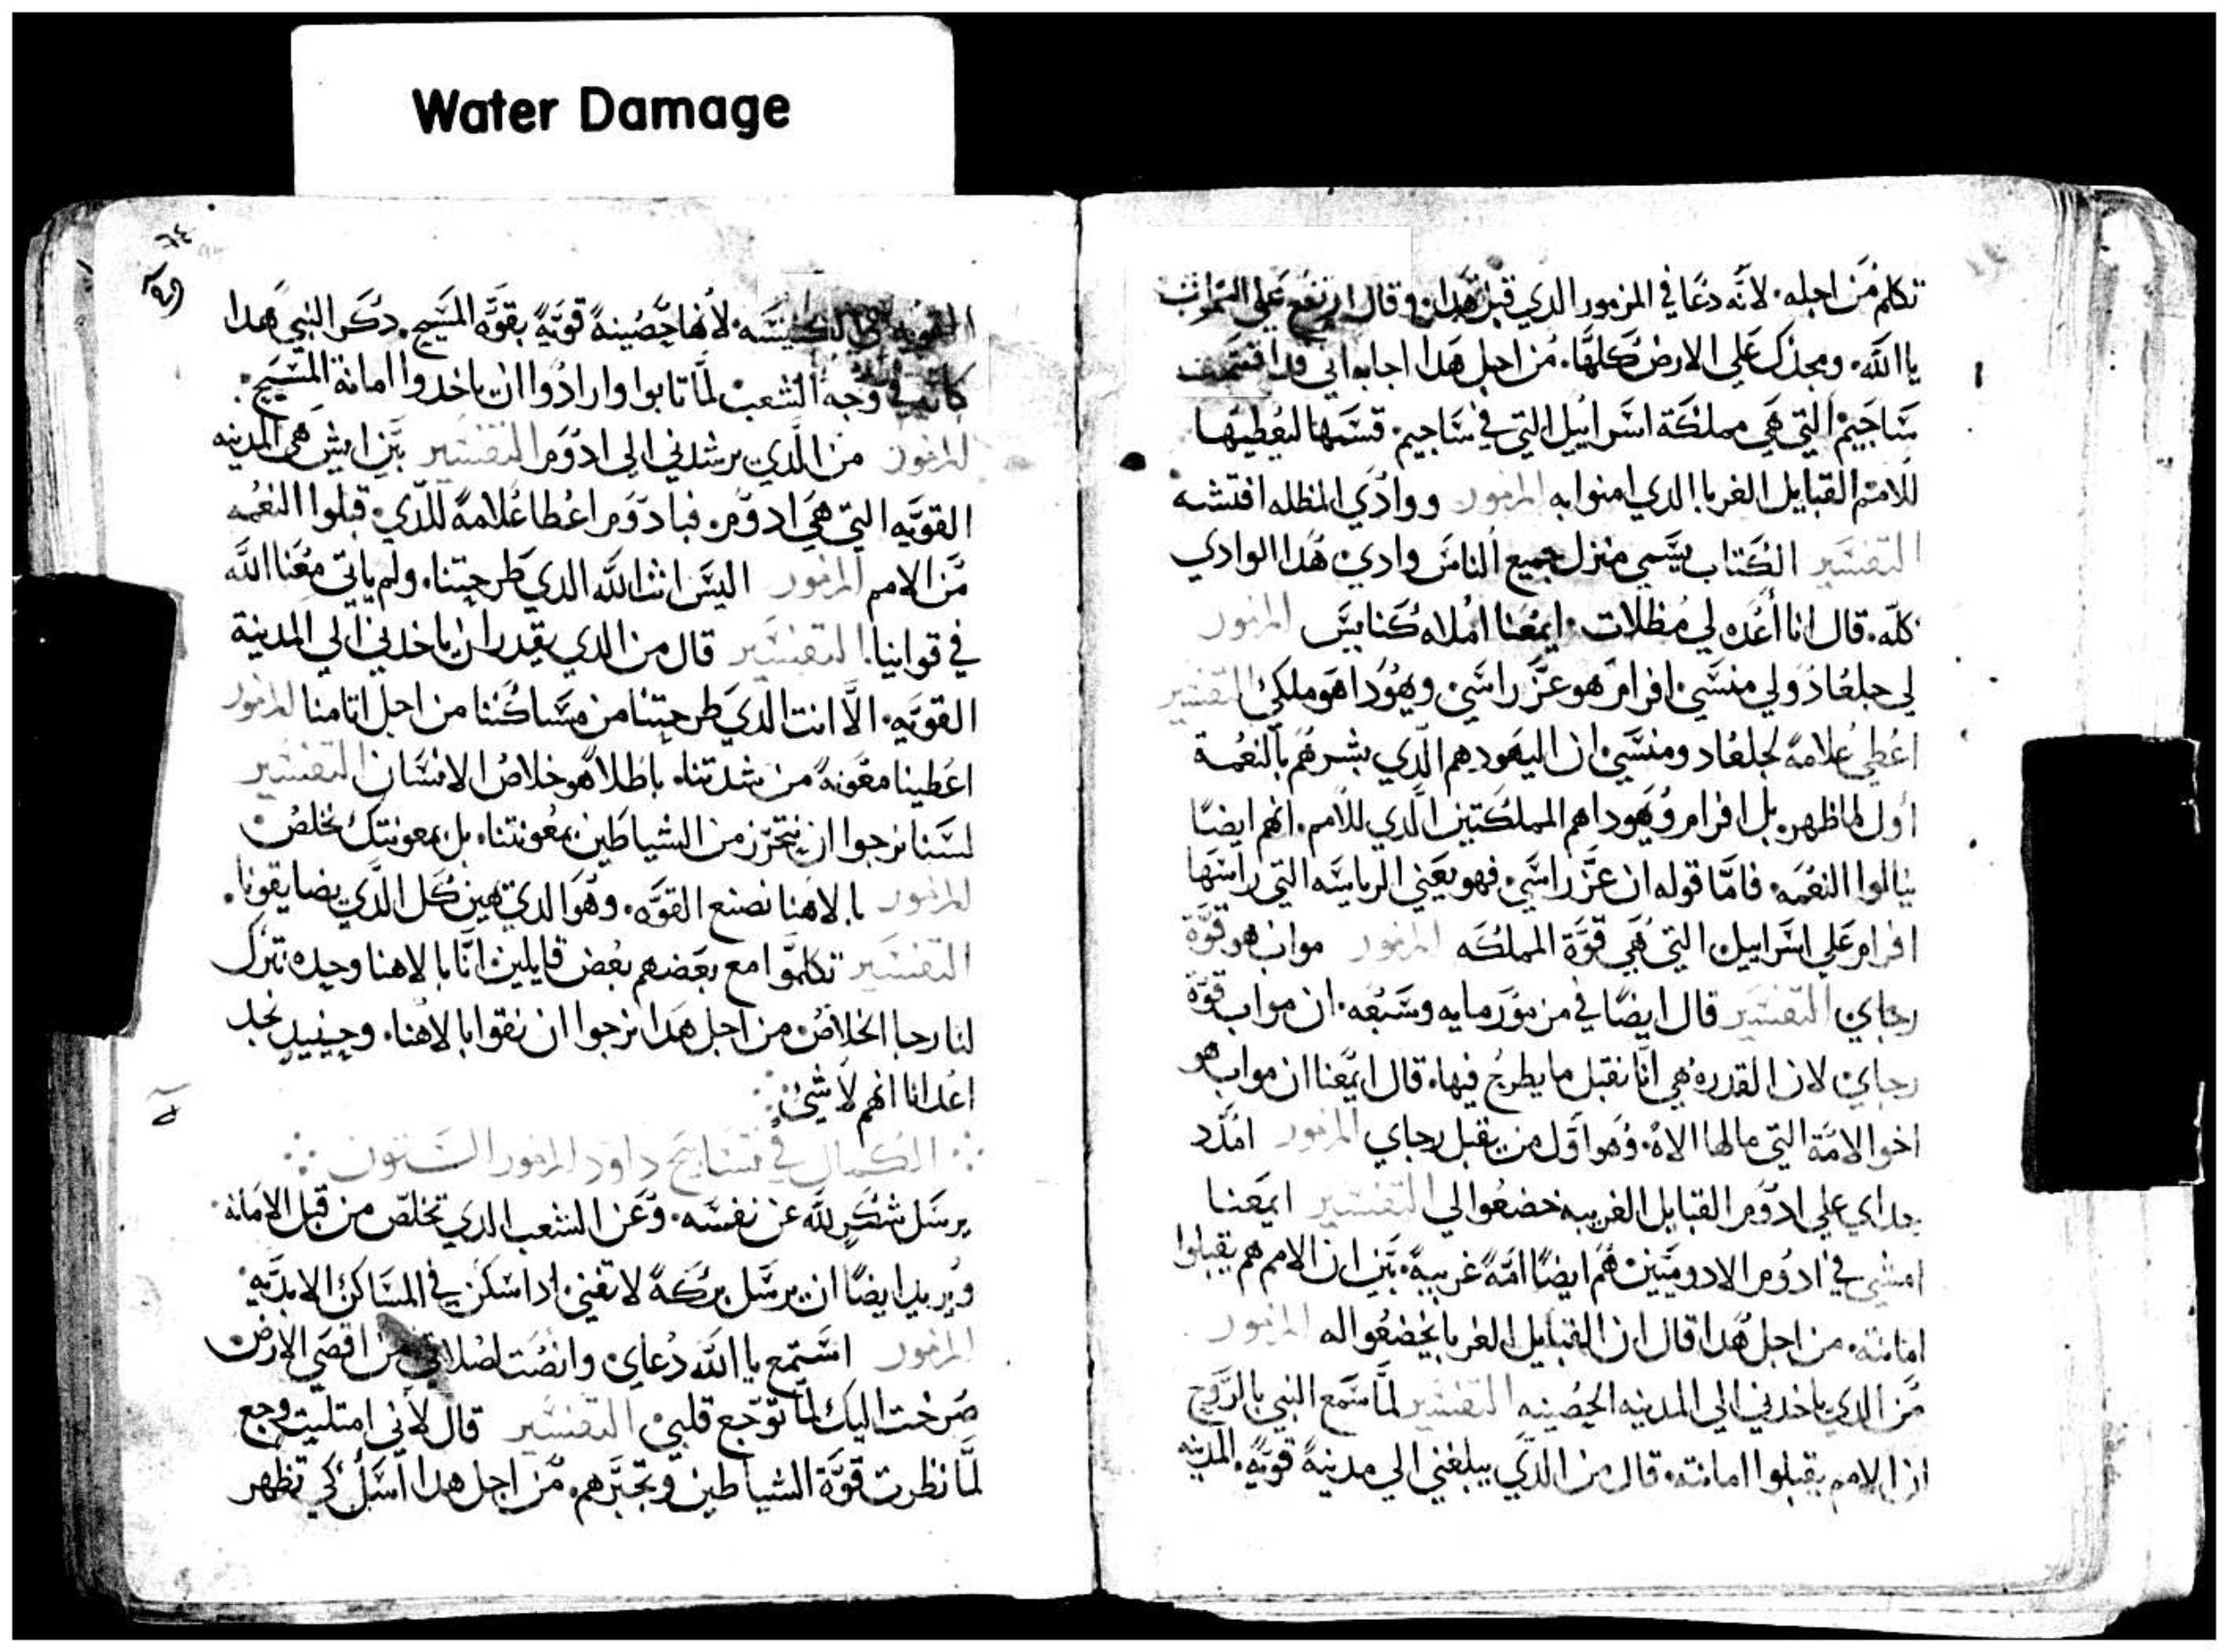 Water Damage
تكلم من اجله. لانه دعا في المزمور الدي قبل هدا. وقال ارتفع علي السموات
يا الله. ومجدك علي الارض كلها. من اجل هدا اجابوا اني
ساجيم التي هي مملكة اسراييل التي في ساجيم. قسمها ليعطيها
للامم القبايل الغربا الدي امنوا به المزمور ووادي المظله افتشه
التفسير الكتاب يسمي منزل جميع الناس وادي هدا الوادي
كله. قال انا اعده لي مظلات. ايمعنا املاه كنايس المزمور
لي جلعاد ولي منسي افرام هو عز راسي. ويهودا هو ملكي التفسير
اعطي علامة لجلعاد ومنسي ان اليهود هم الدي بشرهم بالنعمة
اول لما ظهر. بل افرام ويهودا هم المملكتين الدي للامم. انهم ايضا
ينالوا النعمه. فاما قوله ان عز راسي. فهو يعني الرياسه التي راسها
افرام علي اسراييل التي هي قوة المملكه المزمور مواب هو قوة
رجاي التفسير قال ايضا في مزمور مايه وسبعه. ان مواب قوة
رجاي لان القدره هي انا نقبل ما يطرح فيها. قال ايمعنا ان مواب هو
اخو الامة التي مالها الاه. وهو اول من يقبل رجاي المزمور امدد
حداي علي ادوم القبايل الغريبه خضعوا لي التفسير ايمعنا
امشي في ادوم الادوميين هم ايضا امة غريبة. بين ان الامم هم يقبلوا
امانته. من اجل هدا قال ان القبايل الغربا يخضعوا له المزمور
من الدي ياخدني الي المدينه الحصينه التفسير لما سمع النبي بالروح
ان الامم يقبلوا امانته. قال من الدي يبلغني الي مدينة قوية. المدينه
٦٤
الكنيسه. لانها حصينة قوية بقوة المسيح. دكر النبي هدا
كانه في وجه الشعب لما تابوا وارادوا ان ياخدوا امانة المسيح.
المزمور من الدي يرشدني الي ادوم التفسير بين ايش هي المدينه
القويه التي هي ادوم. فبادوم اعطا علامة للدي قبلوا النعمه
من الامم المزمور اليس انت الله الدي طرحتنا. ولم ياتي معنا الله
في قواينا. التفسير قال من الدي يقدر ان ياخدني الي المدينة
القويه. الا انت الدي طرحتنا من مساكننا من اجل اتامنا المزمور
اعطينا معونة من شدتنا. باطلا هو خلاص الانسان التفسير
لسنا نرجوا ان نتحرز من الشياطين بمعونتنا. بل بمعونتك نخلص
المزمور بالاهنا نصنع القوه. وهو الدي يهين كل الدي يضايقونا.
التفسير تكلموا مع بعضهم بعض قايلين انا بالاهنا وحده نترك
لنا رجا الخلاص من اجل هدا نرجوا ان نقوا بالاهنا. وحينيد نجد
اعدانا انهم لا شي
الكمال في تسابيح داود المزمور الستون
يرسل شكر لله عن نفسه. وعن الشعب الدي تخلص من قبل الامانه.
ويريد ايضا ان يرسل بركة لا تفني. ادا سكن في المساكن الابديه.
المزمور استمع يا الله دعاي وانصت لصلاتي من اقصي الارض
صرخت اليك لما توجع قلبي التفسير قال لاني امتليت وجع
لما نظرت قوة الشياطين وتجبرهم. من اجل هدا اسل كي تظهر